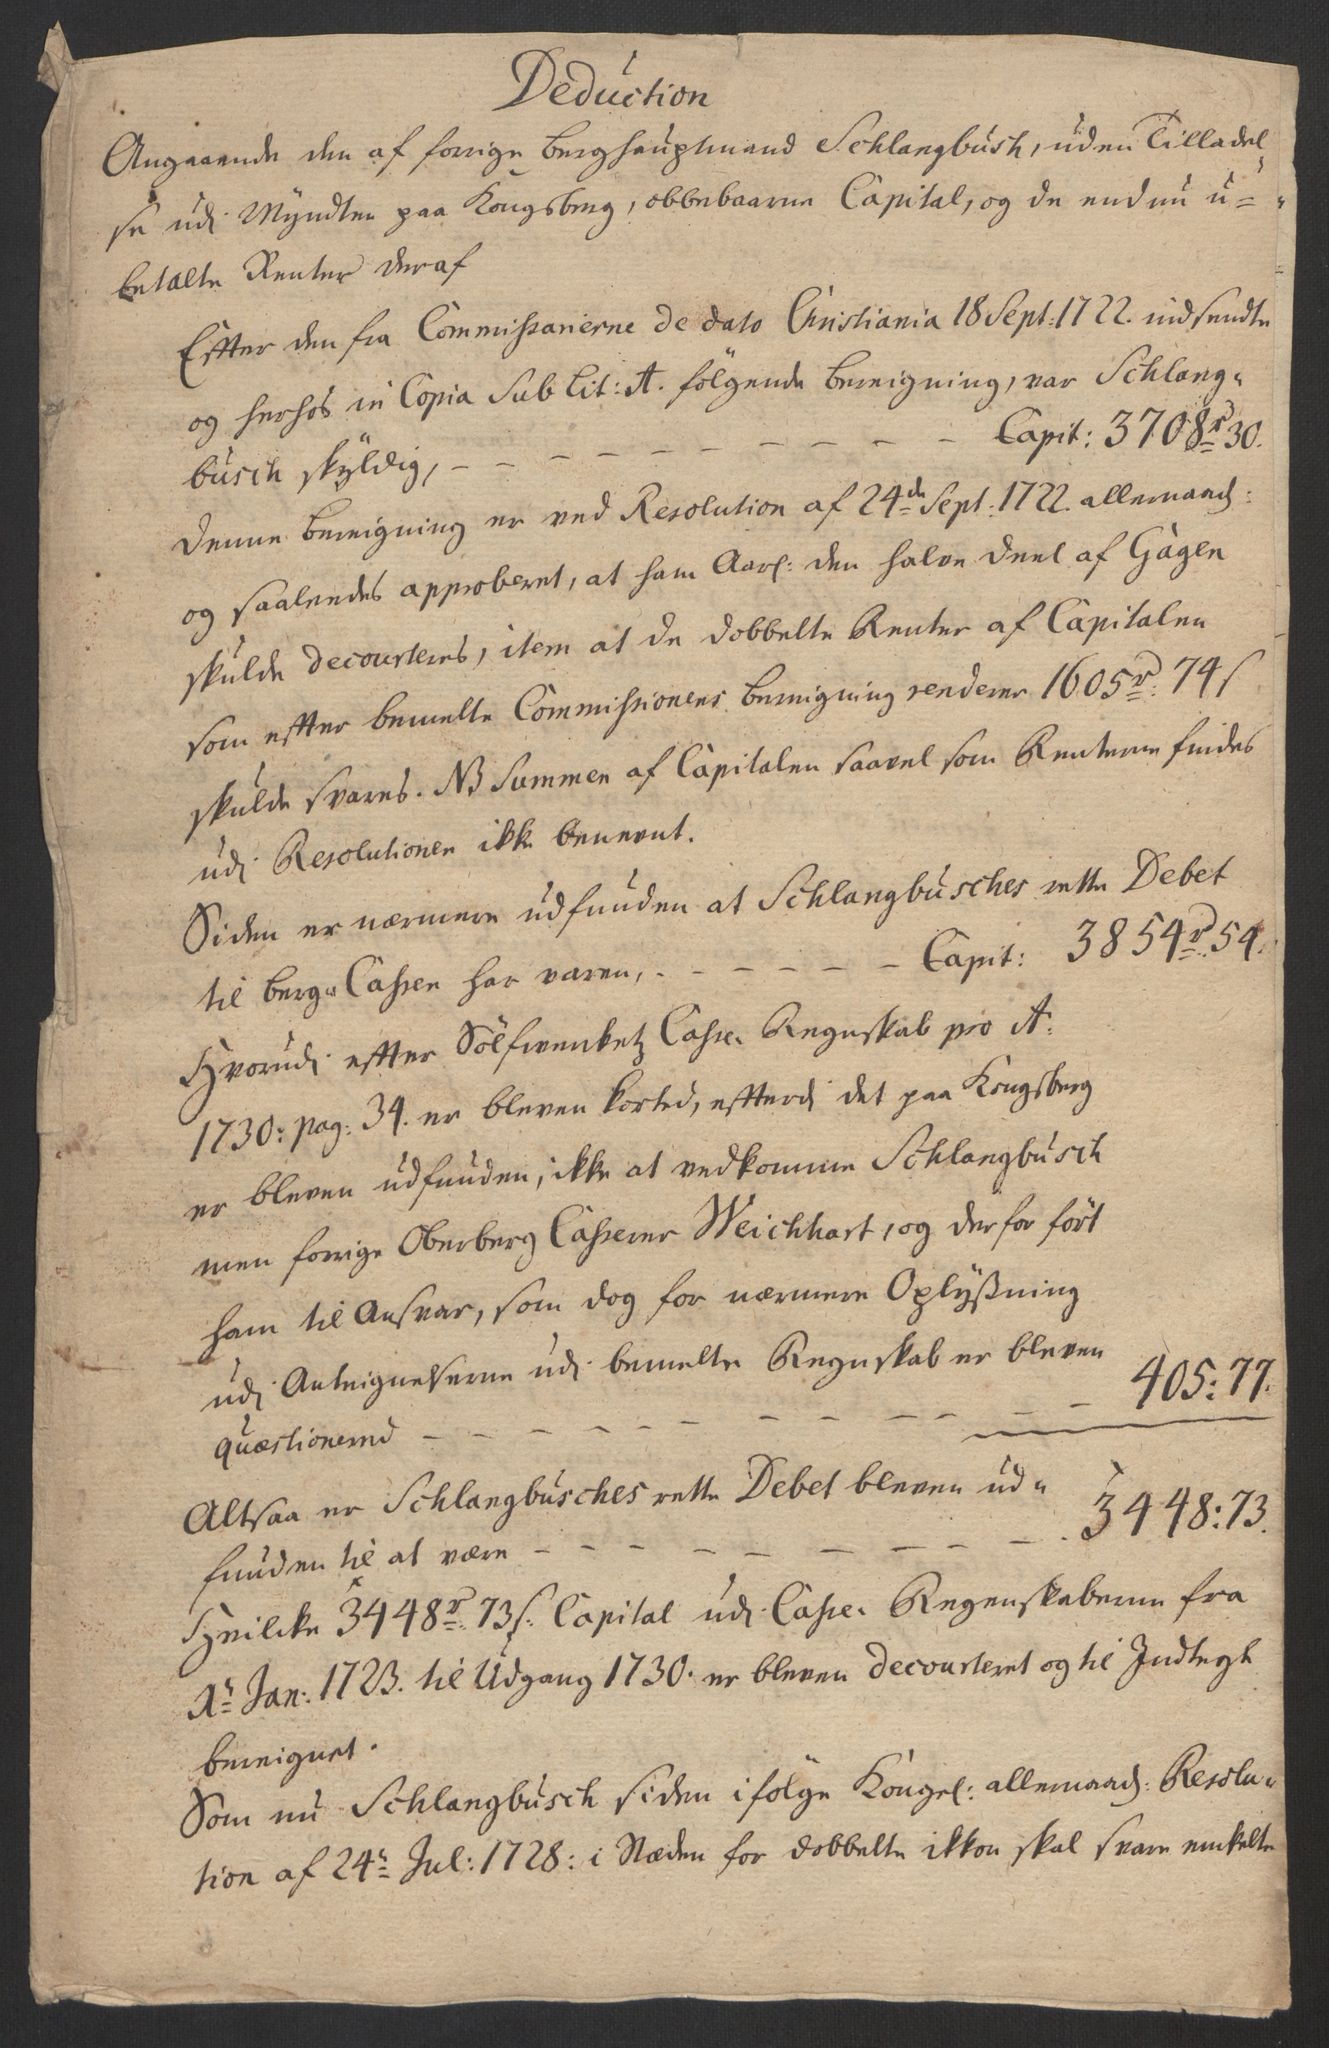 Deduction
Angaaende den af forrige Berghauptmand Schlangbusch, uden Tilladel-
se udj Myndten paa Kongsberg, obbebaarne Capital, og de endnu u=
betalte Renter deraf
Efter den fra Commissarierne de dato Christiania 18 Sept: 1722. indsendte
og herhos in Copia Sub Lit: A. følgende bereigning, var Schlang-
busch skyldig, - - - - - - - - - - Capit: 3708 r 30.
Denne bereigning er ved Resolution af 24de Sept: 1722. allernaad:
og saaledes approberet, at ham Aarl: den halve Deel af Gagen
skulde decourteres, item at de dobbelte Renter af Capitalen
som efter bemelte Commissiones bereigning renderer 1605 r: 74 s
skulde svares. NB Summen af Capitalen saavel som Renterne findes
udj Resolutionen ikke benevnt.
Siden er nærmere udfunden at Schlangbusches rette Debet
til berg-Cassen har varen, - - - - - - Capit: 3854 r 54.
Hvorudj efter Sölfverketz Casse-Regnskab pro A:
1730: pag: 34. er bleven korted, efterdj det paa Kongsberg
er bleven udfunden, ikke at vedkomme Schlangbusch
men forrige Oberberg Casserer Weichhart, og derfor ført
ham til Ansvar, som dog for nærmere Oplysning
udj Anteignelserne udj bemelte Regnskab er bleven
quæstionered - - - - - - - - - - 405: 77.
Altsaa er Schlangbusches rette Debet bleven ud-
funden til at være - - - - - - - - - 3448: 73.
Hvilcke 3448 r 73 s. Capital udj Casse-Regenskaberne fra
1t Jan: 1723. til Udgang 1730. er bleven decourteret og til Indtegt
bereignet.
Som nu Schlangbusch siden ifølge Kongel: allernaad: Resolu-
tion af 24t Jul: 1728: i Stæden for dobbelte ikkon skal svare enkelte